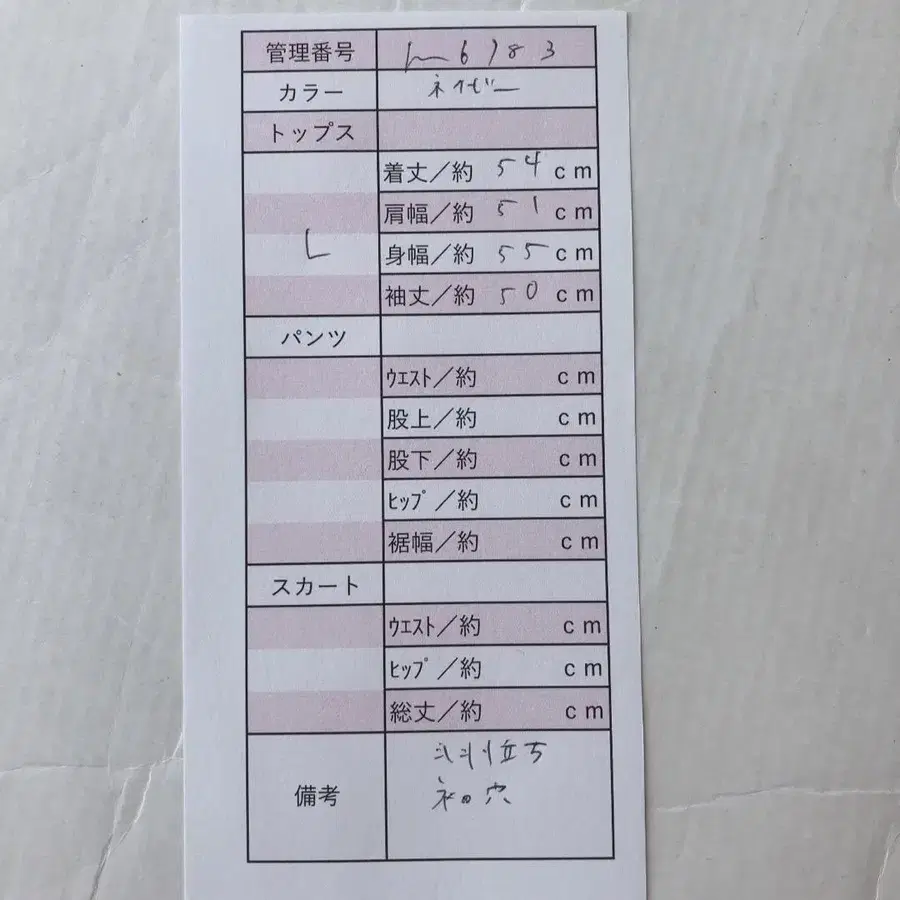 管理番号 m6783
カラー ネイビー
トップス
着丈／約 54 cm
肩幅／約 51 cm
L
身幅／約 55 cm
袖丈／約 50 cm
パンツ
ｳｴｽﾄ／約 cm
股上／約 cm
股下／約 cm
ﾋｯﾌﾟ／約 cm
裾幅／約 cm
スカート
ｳｴｽﾄ／約 cm
ﾋｯﾌﾟ／約 cm
総丈／約 cm
備考
立ち
穴